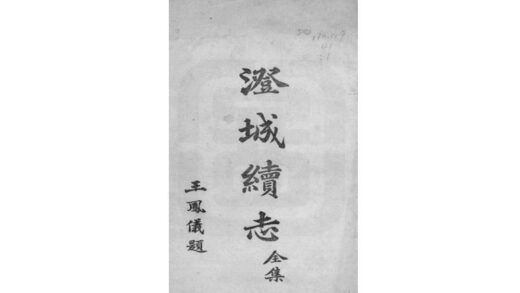 澄城續志
全集
王鳳儀題